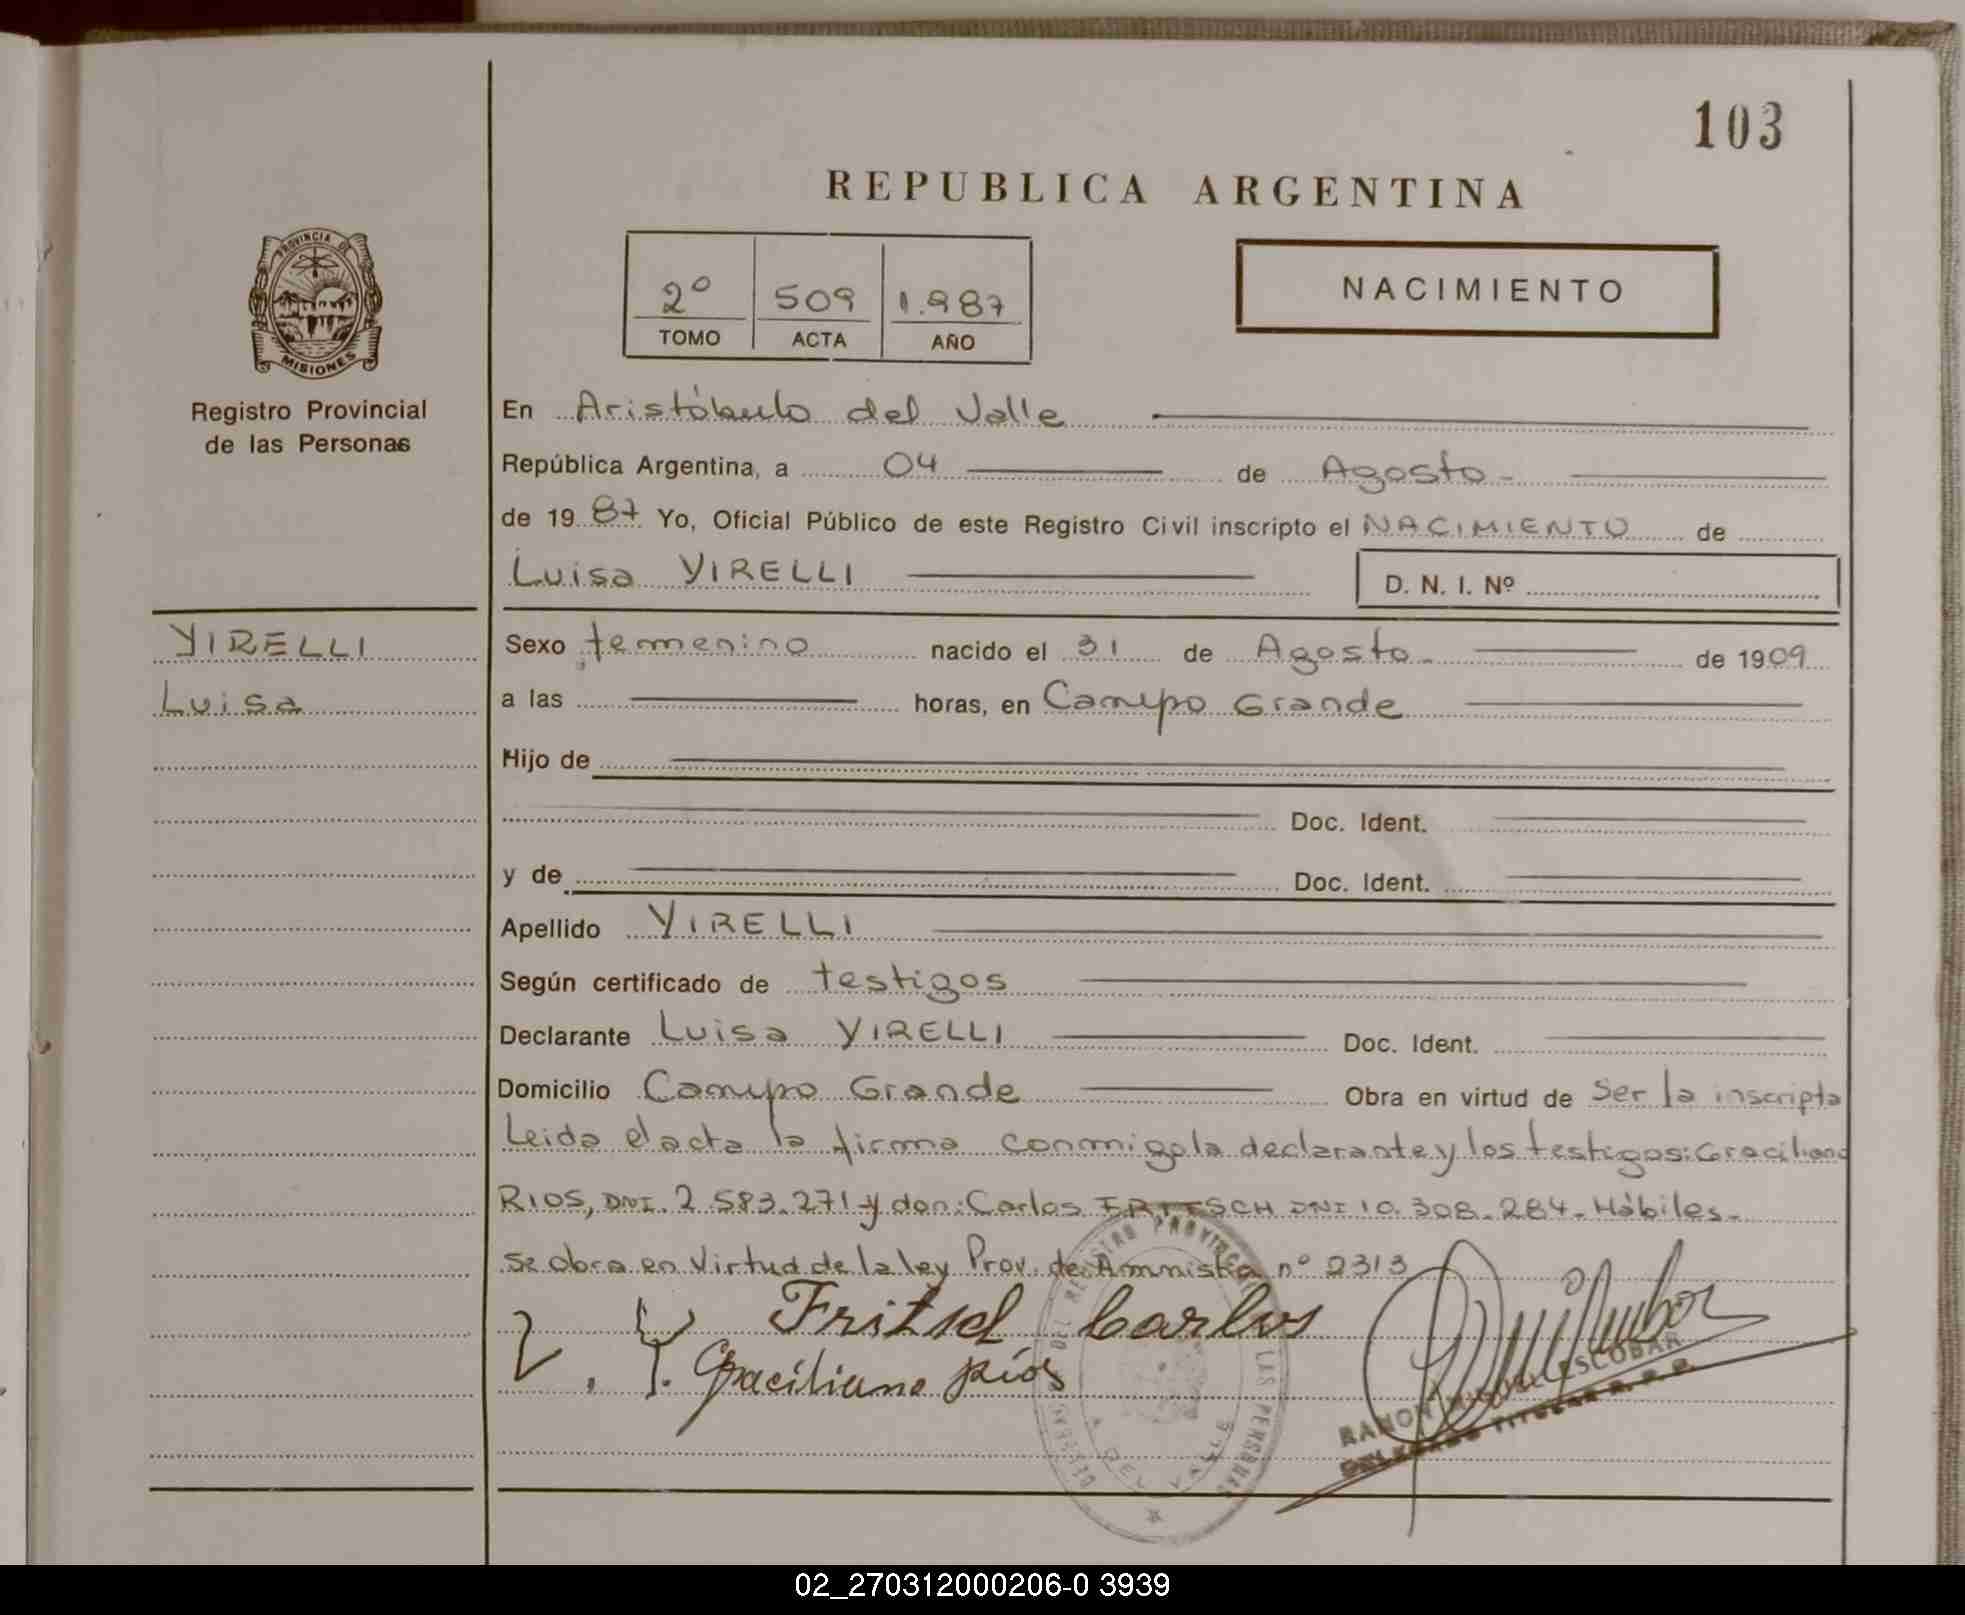 103
REPUBLICA ARGENTINA
PROVINCIA DE
MISIONES
Registro Provincial
de las Personas
2º 509 1.987
TOMO ACTA AÑO
NACIMIENTO
En Aristóbulo del Valle
República Argentina, a 04 de Agosto -
de 19 87 Yo, Oficial Público de este Registro Civil inscripto el NACIMIENTO de
Luisa YIRELLI D. N. I. Nº
YIRELLI
Luisa
Sexo femenino nacido el 31 de Agosto - de 1909
a las horas, en Campo Grande
Hijo de
Doc. Ident.
y de Doc. Ident.
Apellido YIRELLI
Según certificado de testigos
Declarante Luisa YIRELLI Doc. Ident.
Domicilio Campo Grande Obra en virtud de ser la inscripta
Leida el acta la firma conmigo la declarante y los testigos: Graciliano
RIOS, DNI. 2.583.271 y don: Carlos FRITSCH DNI 10.308.284 - Hábiles -
se obra en Virtud de la ley Prov. de Amnistia nº 2313
Fritsch Carlos
Graciliano Ríos
REGISTRO PROVINCIAL DE LAS PERSONAS
A. DEL VALLE
RAMON MIGUEL ESCOBAR
DELEGADO TITULAR R. P. P.
02_270312000206-0 3939